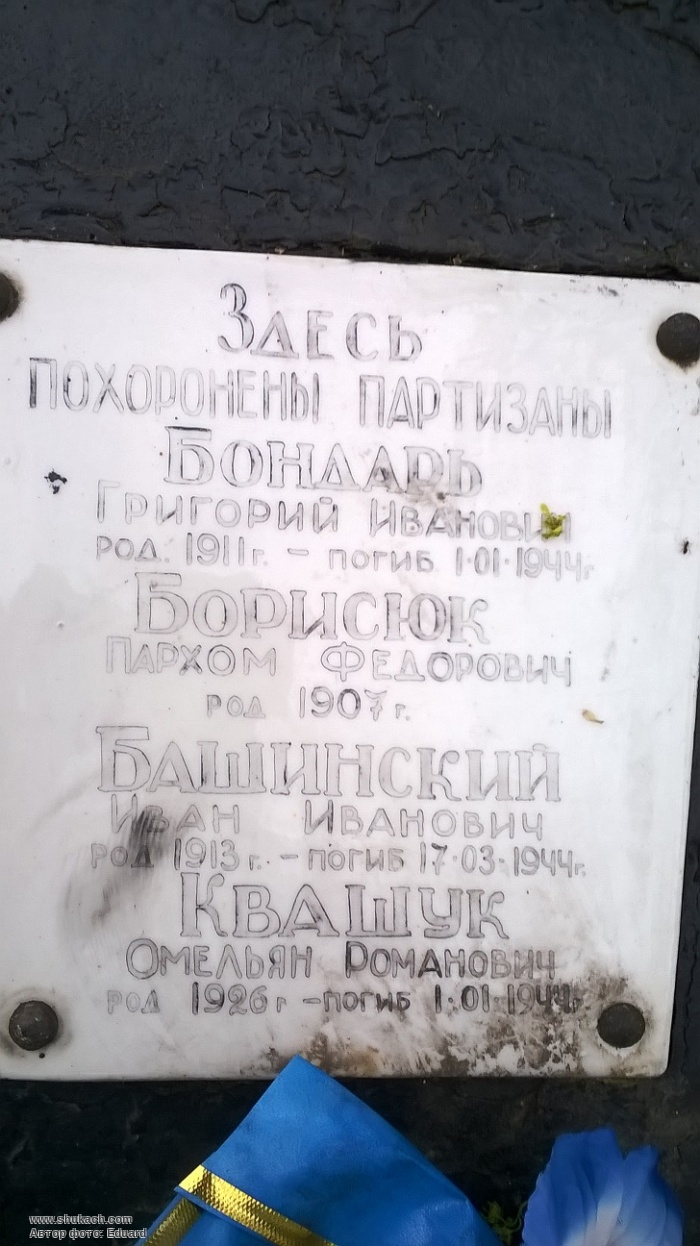 Здесь
похоронены партизаны
Бондарь
Григорий Иванович
род. 1911 г. – погиб 1·01·1944 г.
Борисюк
Пархом Федорович
род 1907 г.
Башинский
Иван Иванович
род 1913 г. – погиб 17·03·1944 г.
Квашук
Омельян Романович
род 1926 г – погиб 1·01·1944 г
www.shukach.com
Автор фото: Eduard